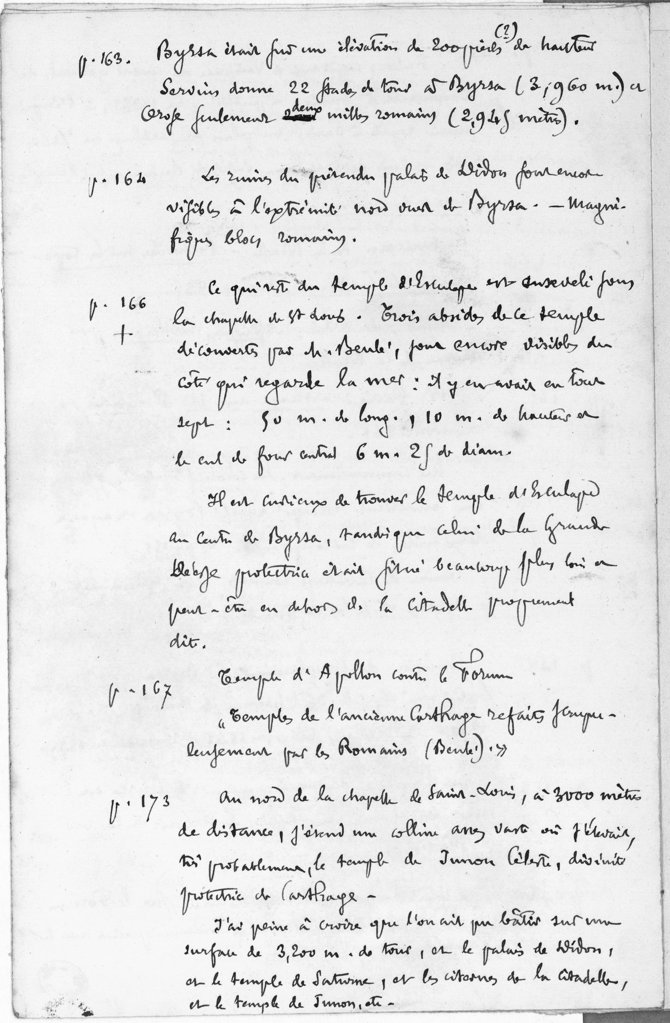 (?)
p. 163. Byrsa était sur une élévation de 200 pieds de hauteur
Servius donne 22 stades de tour à Byrsa (3,960 m.) et
Orose seulement deux milles romains (2,945 mètres).
p. 164 Les ruines du prétendu palais de Didon sont encore
visibles à l'extrémité nord ouest de Byrsa. — Magni-
fiques blocs romains.
p. 166 Ce qui reste du temple d'Esculape est enseveli sous
+ la chapelle de St Louis. Trois absides de ce temple
découvertes par M. Beulé, sont encore visibles du
côté qui regarde la mer : il y en avait en tout
sept : 50 m. de long, 10 m. de hauteur et
le cul de four central 6 m. 25 de diam.
Il est curieux de trouver le temple d'Esculape
au centre de Byrsa, tandis que celui de la Grande
Déesse protectrice était situé beaucoup plus loin et
peut-être en dehors de la citadelle proprement
dite.
p. 167 Temple d'Apollon contre le Forum
"Temples de l'ancienne Carthage refaits scrupu-
leusement par les Romains (Beulé)."
p. 173 Au nord de la chapelle de Saint-Louis, à 3000 mètres
de distance, s'étend une colline assez vaste où s'élevait,
très probablement, le temple de Junon Céleste, divinité
protectrice de Carthage -
J'ai peine à croire que l'on ait pu bâtir sur une
surface de 3,200 m. de tour, et le palais de Didon,
et le temple de Saturne, et les citernes de la citadelle,
et le temple de Junon, etc -